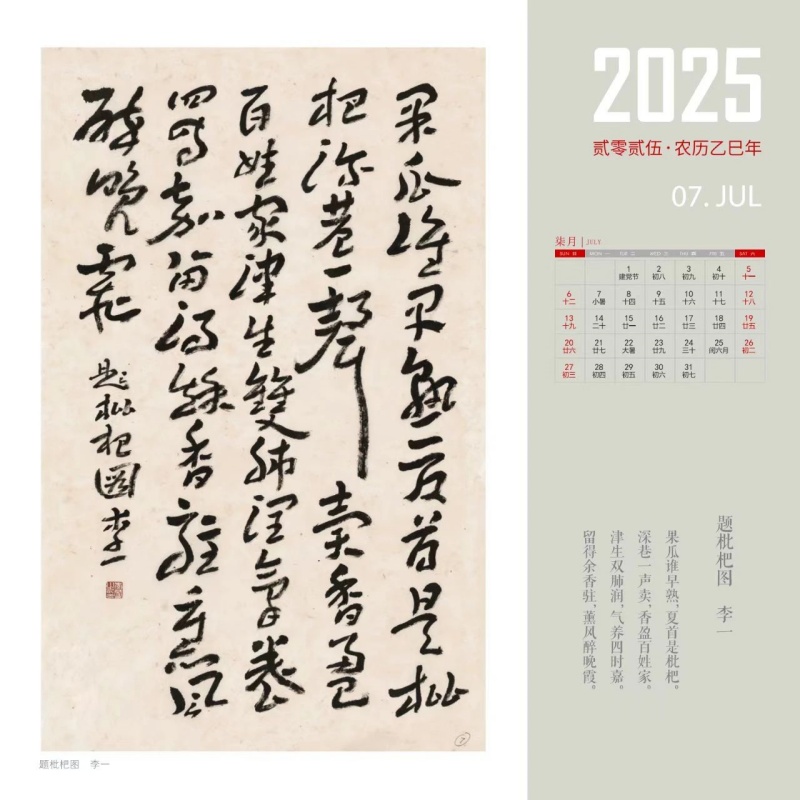 果瓜誰早熟夏首是枇
杷深巷一聲賣香盈
百姓家津生雙肺潤氣養
四時嘉留得餘香駐熏風
醉晚霞
題枇杷圖 李一
题枇杷图 李一
2025
贰零贰伍·农历乙巳年
07. JUL
柒月 JULY
SUN 日 MON 一 TUE 二 WED 三 THU 四 FRI 五 SAT 六
1 2 3 4 5
建党节 初八 初九 初十 十一
6 7 8 9 10 11 12
十二 小暑 十四 十五 十六 十七 十八
13 14 15 16 17 18 19
十九 二十 廿一 廿二 廿三 廿四 廿五
20 21 22 23 24 25 26
廿六 廿七 大暑 廿九 三十 闰六月 初二
27 28 29 30 31
初三 初四 初五 初六 初七
题枇杷图 李一
果瓜谁早熟，夏首是枇杷。
深巷一声卖，香盈百姓家。
津生双肺润，气养四时嘉。
留得余香驻，薰风醉晚霞。